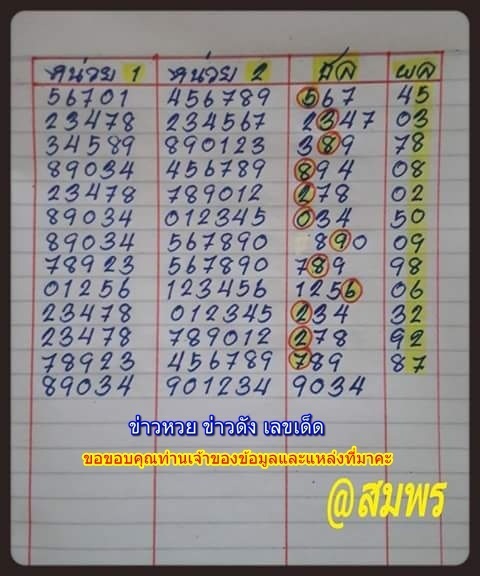 หน่วย 1 หน่วย 2 ชีล ผล
56701 456789 567 45
23478 234567 2347 03
34589 890123 389 78
89034 456789 894 08
23478 789012 278 02
89034 012345 034 50
89034 567890 890 09
78923 567890 789 98
01256 123456 1256 06
23478 012345 234 32
23478 789012 278 92
78923 456789 789 87
89034 901234 9034
ข่าวหวย ข่าวดัง เลขเด็ด
ขอขอบคุณท่านเจ้าของข้อมูลและแหล่งที่มาคะ
@สมพร